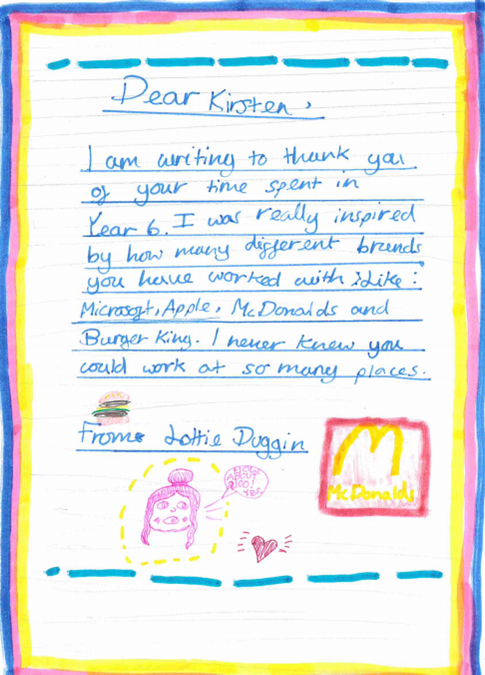 Dear Kirsten,
I am writing to thank you
of your time spent in
Year 6. I was really inspired
by how many different brands
you have worked with: Like:
Microsoft, Apple, McDonalds and
Burger King. I never knew you
could work at so many places.
From Lottie Duggin
M
McDonalds